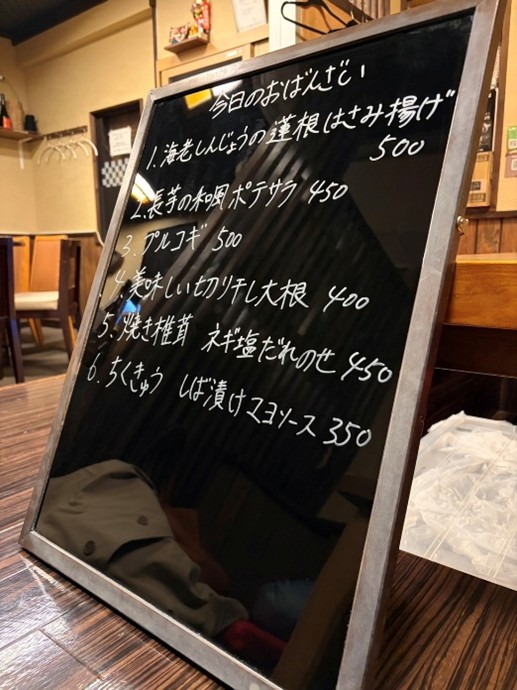 今日のおばんざい
1. 海老しんじょうの蓮根はさみ揚げ
500
2. 長芋の和風ポテサラ 450
3. プルコギ 500
4. 美味しい切り干し大根 400
5. 焼き椎茸 ネギ塩だれのせ 450
6. ちくきゅう しば漬けマヨソース 350